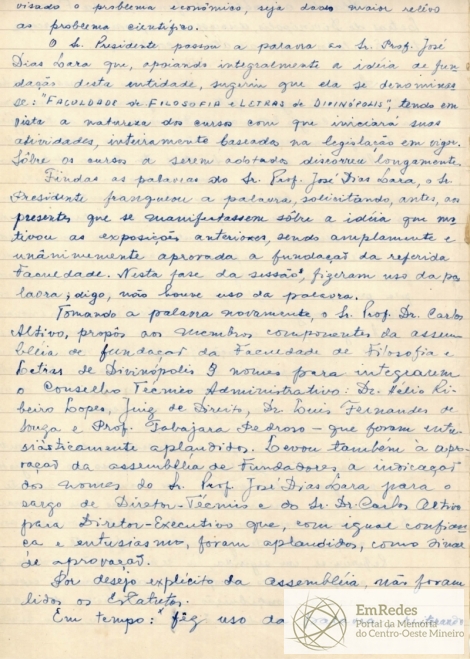 visado o problema econômico, seja dado maior relêvo
ao problema científico.
O Sr. Presidente passou a palavra ao Sr. Prof. José
Dias Lara que, apoiando integralmente a idéia de fun-
dação desta entidade, sugeriu que ela se denominas-
se: "FACULDADE de FILOSOFIA e LETRAS de DIVINÓPOLIS", tendo em
vista a natureza dos cursos com que iniciará suas
atividades, inteiramente baseada na legislação em vigor.
Sôbre os cursos a serem adotados discorreu longamente.
Findas as palavras do Sr. Prof. José Dias Lara, o Sr.
Presidente franqueou a palavra, solicitando, antes, aos
presentes que se manifestassem sôbre a idéia que mo-
tivou as exposições anteriores, sendo amplamente e
unânimemente aprovada a fundação da referida
Faculdade. Nesta fase da sessão, fizeram uso da pa-
lavra, digo, não houve uso da palavra.
Tomando a palavra novamente, o Sr. Prof. Dr. Carlos
Altivo, propôs aos membros componentes da assem-
bléia de fundação da Faculdade de Filosofia e
Letras de Divinópolis 3 nomes para integrarem
o Conselho Técnico Administrativo: Dr. Célio Ri-
beiro Lopes, Juiz de Direito, Dr. Luís Fernandes de
Souza e Prof. Tabajara Pedroso - que foram entu-
siàsticamente aplaudidos. Levou também à apro-
vação da assembléia de Fundadores a indicação
dos nomes do Sr. Prof. José Dias Lara para o
cargo de Diretor-Técnico e do Sr. Dr. Carlos Altivo
para Diretor-Executivo que, com igual confian-
ça e entusiasmo, foram aplaudidos, como sinal
de aprovação.
Por desejo explícito da assembléia, não foram
lidos os Estatutos.
Em tempo: fez uso da
EmRedes
Portal da Memória
do Centro-Oeste Mineiro